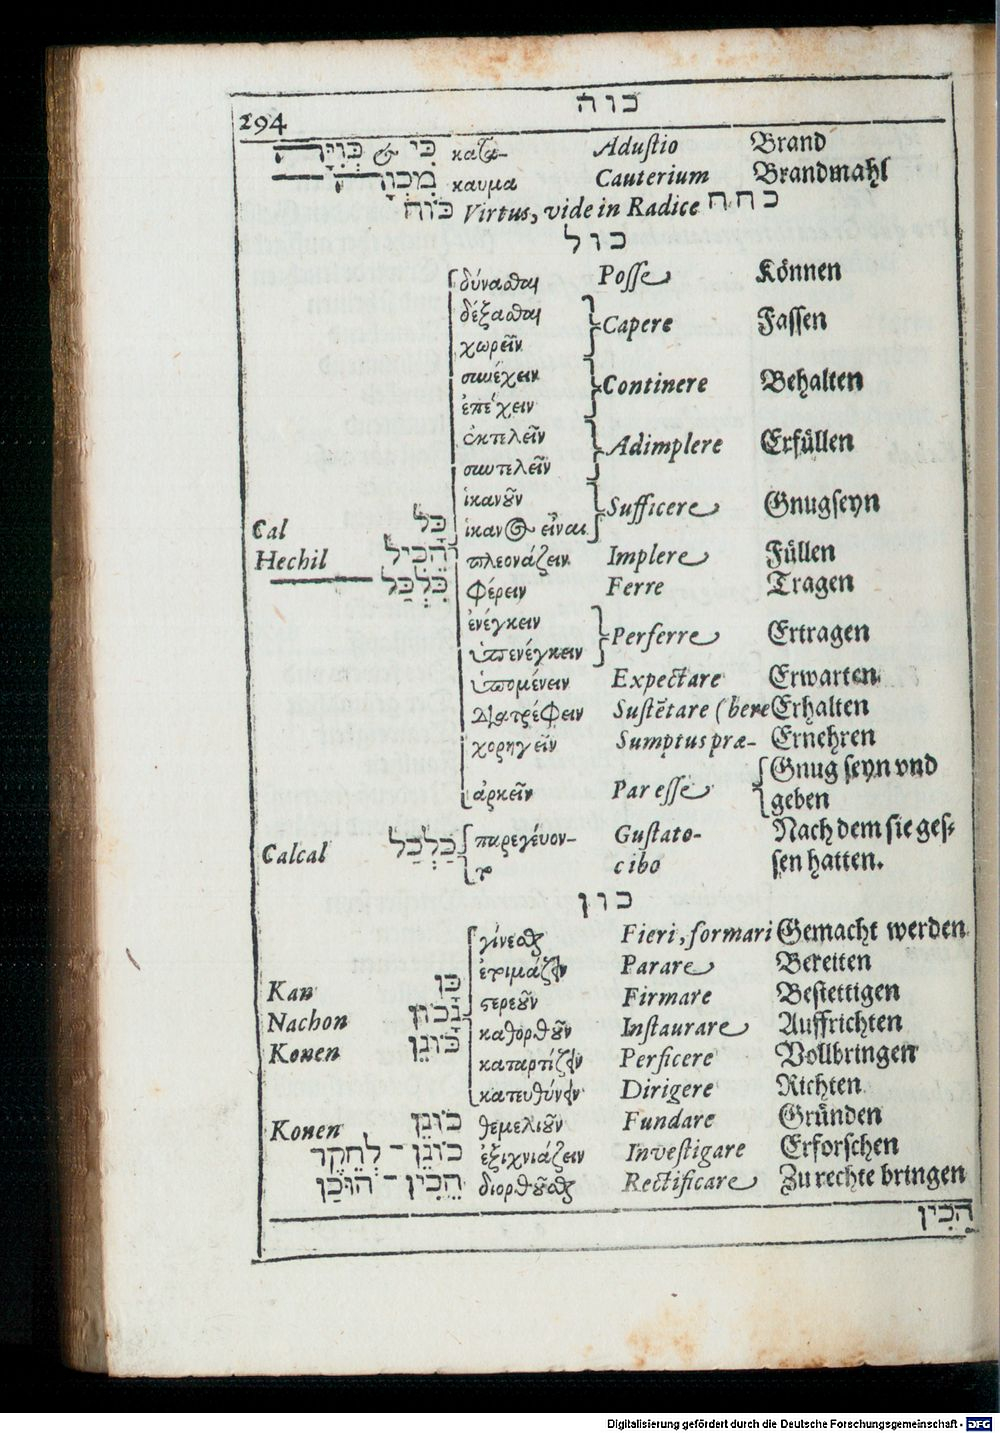 294 כוה
כִּי & כְּוִיָּה κατα- Adustio Brand
מִכְוָה καυμα Cauterium Brandmahl
כּוֹחַ Virtus, vide in Radice כחח
כול
δύνασθαι Posse Können
δέξασθαι
Capere Fassen
χωρεῖν
συνέχειν
Continere Behalten
ἐπέχειν
ἐκτελεῖν
Adimplere Erfüllen
συντελεῖν
ἱκανοῦν
Sufficere Gnugseyn
Cal כָּל ἱκανὸς εἶναι
Hechil הֵכִיל πλεονάζειν Implere Füllen
כִּלְכַּל φέρειν Ferre Tragen
ἐνέγκειν
Perferre Ertragen
ὑπενέγκειν
ὑπομένειν Expectare Erwarten
διατρέφειν Sustētare (bere Erhalten
χορηγεῖν Sumptus præ- Ernehren
Gnug seyn vnd
ἀρκεῖν Par esse geben
Calcal כַלְכַל παρεγέυον- Gustato- Nach dem sie ges-
το cibo sen hatten.
כון
γίνεσθαι Fieri, formari Gemacht werden
ἑτοιμάζειν Parare Bereiten
Kan כַּן στερεοῦν Firmare Bestettigen
Nachon נָכוֹן καθορθοῦν Instaurare Auffrichten
Konen כּוֹנֵן καταρτίζειν Perficere Vollbringen
κατευθύνειν Dirigere Richten
Konen כוֹנֵן θεμελιοῦν Fundare Gründen
כוֹנֵן - לְחֵקֶר ἐξιχνιάζειν Investigare Erforschen
הֵכִין - הוּכַן διορθοῦσθαι Rectificare Zu rechte bringen
הֵכִין
Digitalisierung gefördert durch die Deutsche Forschungsgemeinschaft - DFG